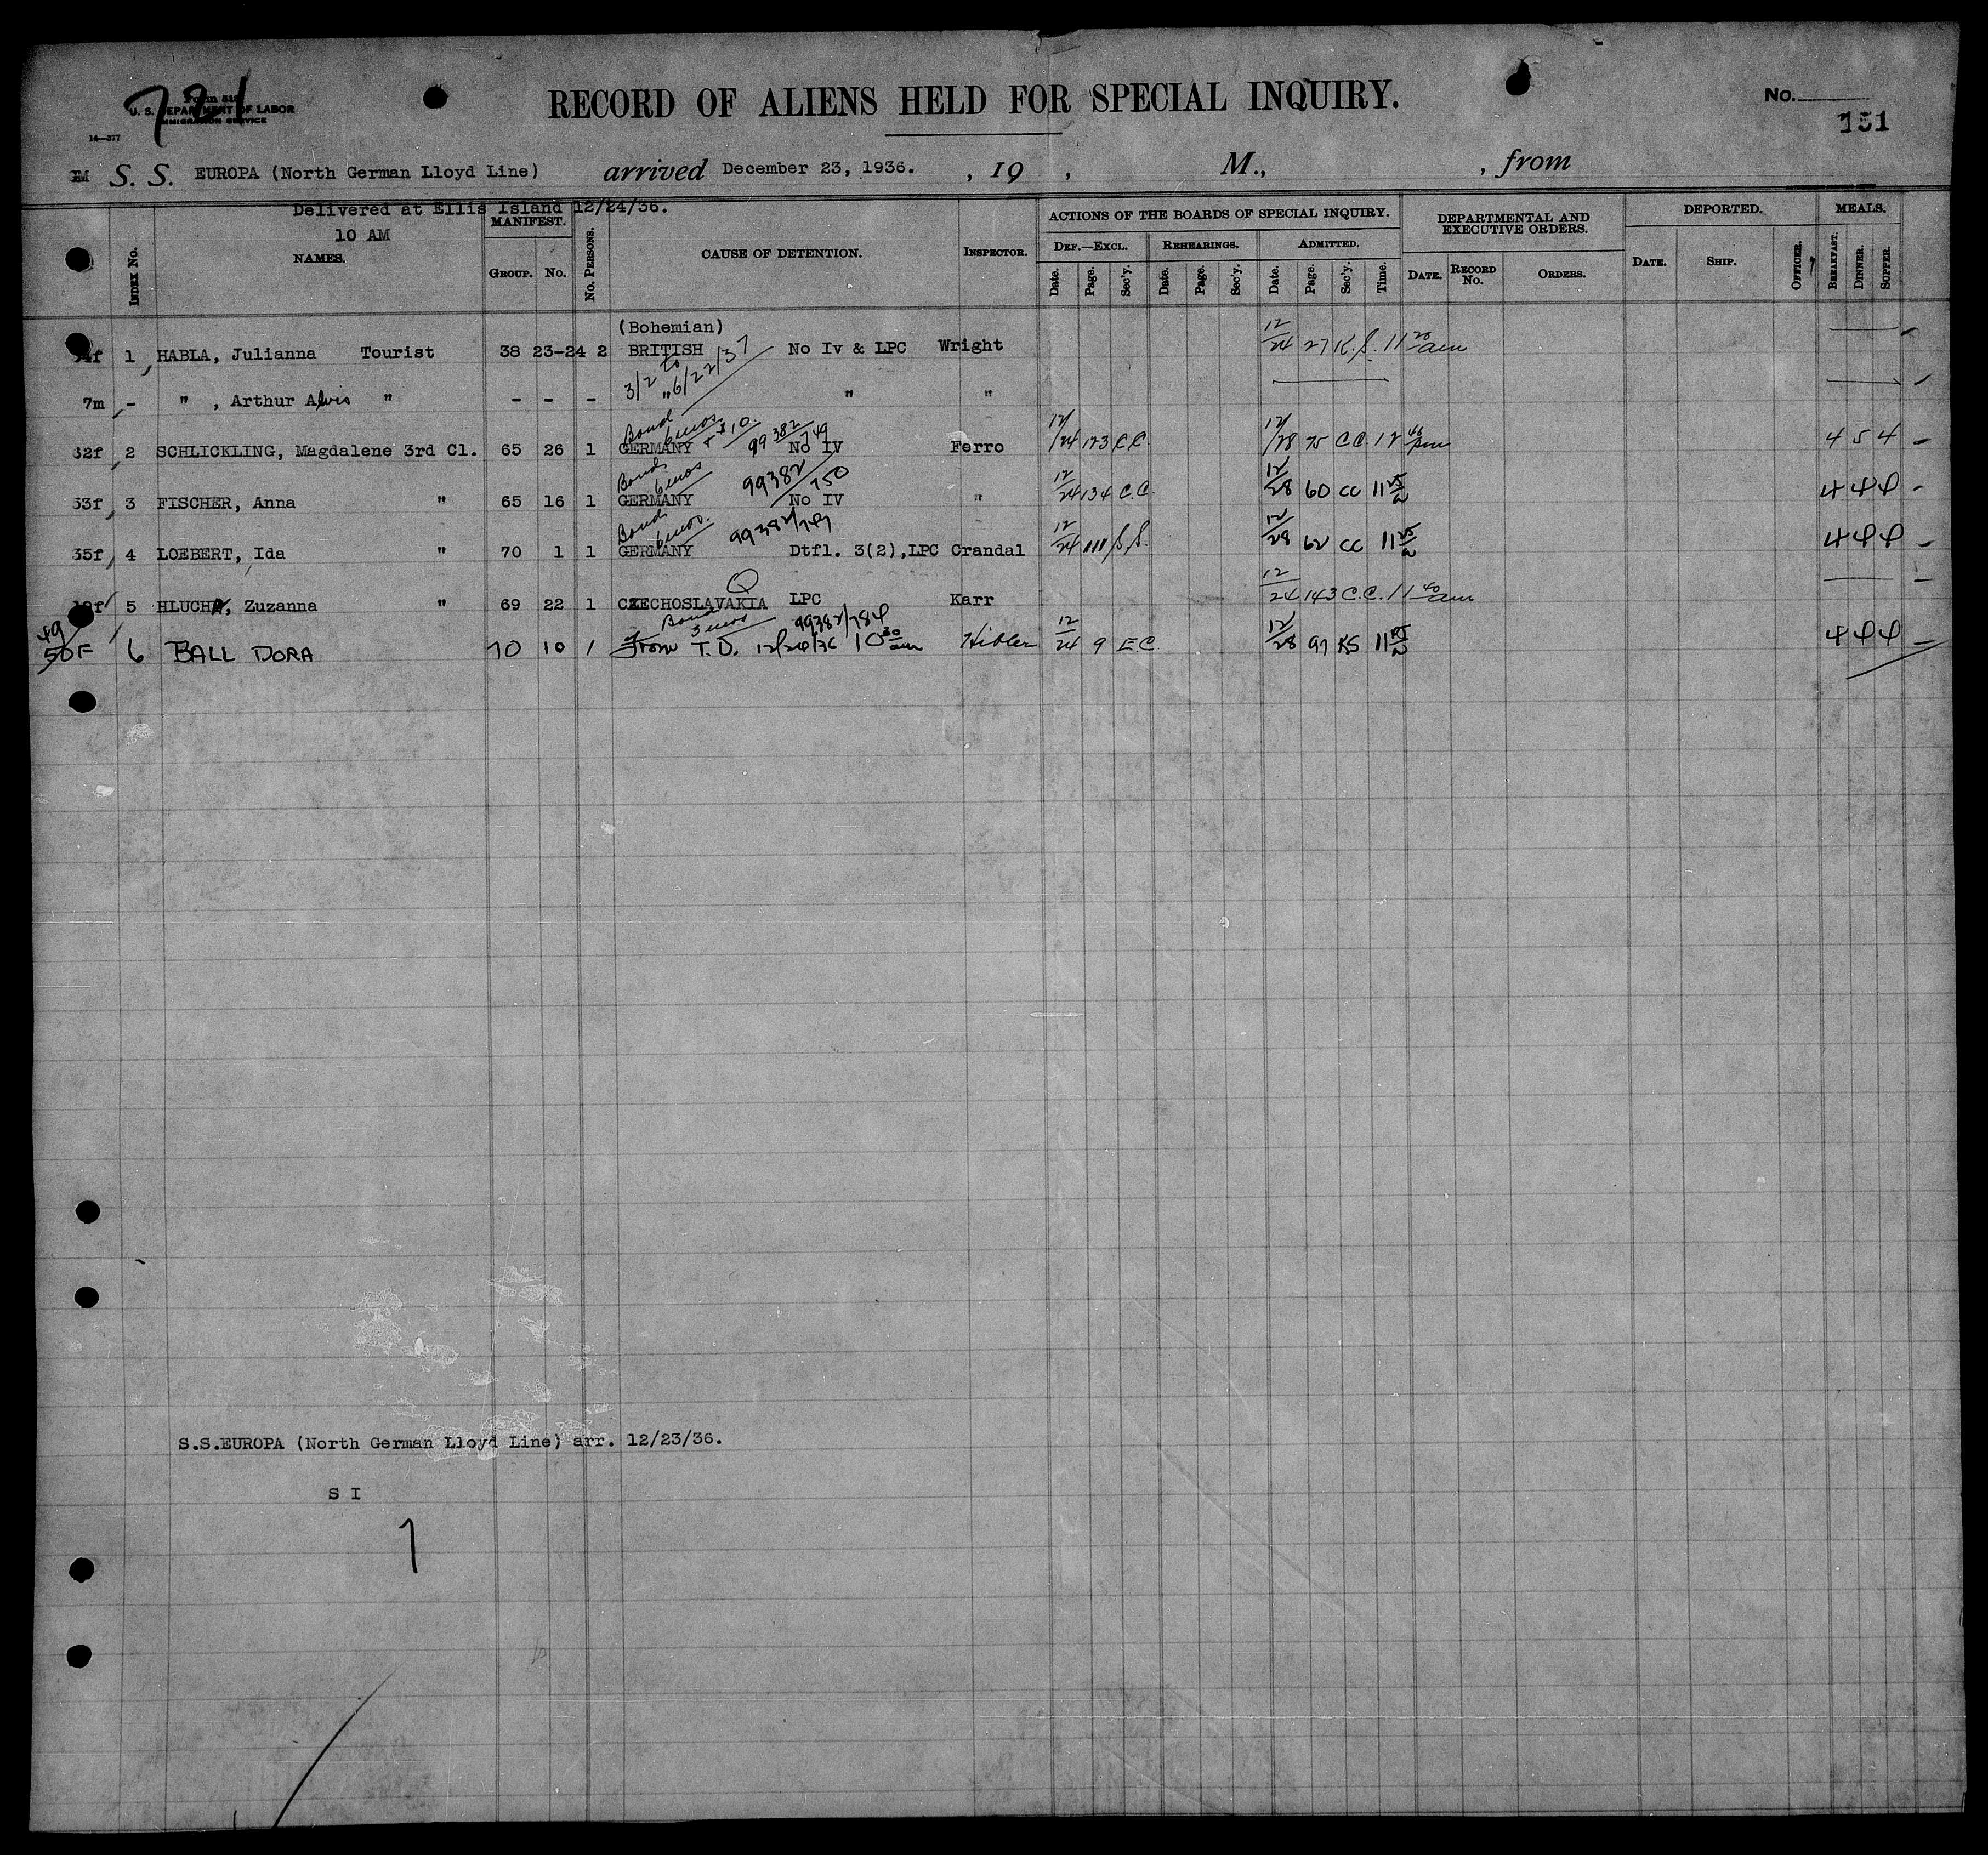 721
Form 518
U. S. DEPARTMENT OF LABOR
IMMIGRATION SERVICE
14—377
RECORD OF ALIENS HELD FOR SPECIAL INQUIRY.
No.
151
S. S. EUROPA (North German Lloyd Line) arrived December 23, 1936. , 19 , M., , from
Delivered at Ellis Island 12/24/36.
10 AM
INDEX No. NAMES. MANIFEST. GROUP. No. No. PERSONS. CAUSE OF DETENTION. INSPECTOR. ACTIONS OF THE BOARDS OF SPECIAL INQUIRY. DEF.—EXCL. Date. Page. Sec'y. REHEARINGS. Date. Page. Sec'y. ADMITTED. Date. Page. Sec'y. Time. DEPARTMENTAL AND EXECUTIVE ORDERS. DATE. RECORD No. ORDERS. DEPORTED. DATE. SHIP. OFFICER. MEALS. BREAKFAST. DINNER. SUPPER.
(Bohemian)
1 HABLA, Julianna Tourist 38 23-24 2 BRITISH No Iv & LPC Wright 12/24 27 K.S. 11 20 am
3/2 to 6/22/37
7m - " , Arthur Alvis " - - - " " "
Bond 6 mos + $10. 99382/749
32f 2 SCHLICKLING, Magdalene 3rd Cl. 65 26 1 GERMANY No IV Ferro 12/24 123 C.C. 12/28 75 C.C. 12 40 pm 4 5 4
Bond 6 mos 99382/750
53f 3 FISCHER, Anna " 65 16 1 GERMANY No IV " 12/24 134 C.C. 12/28 60 CC 11 25 4 4 4
Bond 6 mos. 99382/749
35f 4 LOEBERT, Ida " 70 1 1 GERMANY Dtfl. 3(2),LPC Crandal 12/24 111 S.S. 12/28 62 CC 11 25 4 4 4
5 HLUCHA, Zuzanna " 69 22 1 CZECHOSLAVAKIA LPC Karr 12/24 143 C.C. 11 40 am
Bond 3 mos 99382/784
49 50F 6 BALL DORA 70 10 1 From T.D. 12/24/36 10 30 am Hibler 12/24 9 E C. 12/28 97 KS 11 25 4 4 4
S.S.EUROPA (North German Lloyd Line) arr. 12/23/36.
S I
7